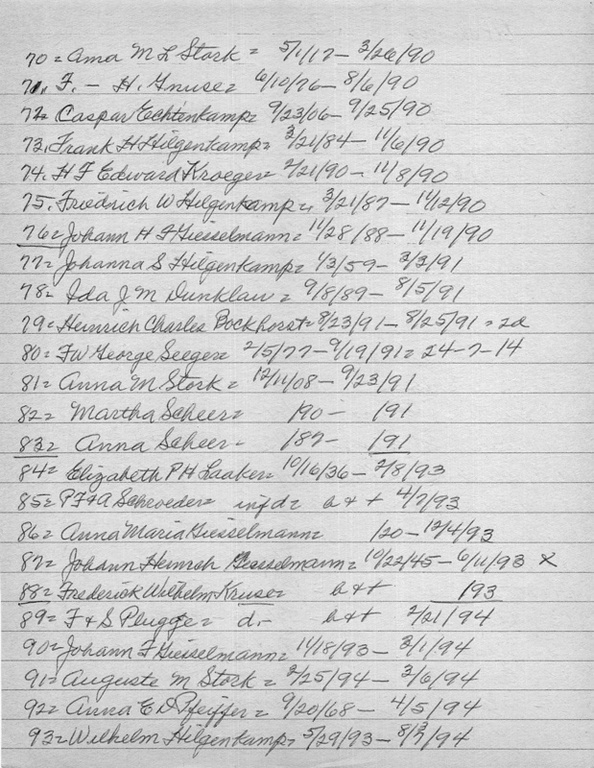 70 = Ama M L Stork = 5/1/17 - 3/26/90
71. F. - H. Gnuse = 6/10/76 - 8/6/90
72 = Caspar Echtenkamp = 9/23/06 - 9/25/90
73. Frank H Hilgenkamp = 3/21/84 - 11/6/90
74. H F Edward Kroeger = 2/21/90 - 11/8/90
75. Friedrich W Hilgenkamp = 3/21/87 - 11/12/90
76 = Johann H F Giesselmann = 11/28/88 - 11/19/90
77 = Johanna S Hilgenkamp = 1/3/59 - 3/3/91
78 = Ida J M Dunklau = 9/8/89 - 8/5/91
79 = Heinrich Charles Bockhorst = 8/23/91 - 8/25/91 = 2d
80 = F W George Seeger = 2/5/77 - 9/19/91 = 24-7-14
81 = Anna M Stork = 12/11/08 - 9/23/91
82 = Martha Scheer = /90 - /91
83 = Anna Scheer - /87 - /91
84 = Elizabeth P H Laaker = 10/16/36 - 2/8/93
85 = P F & A Schroeder = inf d = b & t 4/7/93
86 = Anna Maria Giesselmann = /20 - 12/4/93
87 = Johann Heinrich Giesselmann = 10/22/45 - 6/11/93 x
88 = Frederick Wilhelm Kruse = b & t /93
89 = F & S Plugge = d. - b & t 2/21/94
90 = Johann F Giesselmann = 11/18/93 - 3/1/94
91 = Auguste M Stork = 2/25/94 - 3/6/94
92 = Anna E D Pfeiffer = 9/20/68 - 4/5/94
93 = Wilhelm Hilgenkamp = 5/29/93 - /94